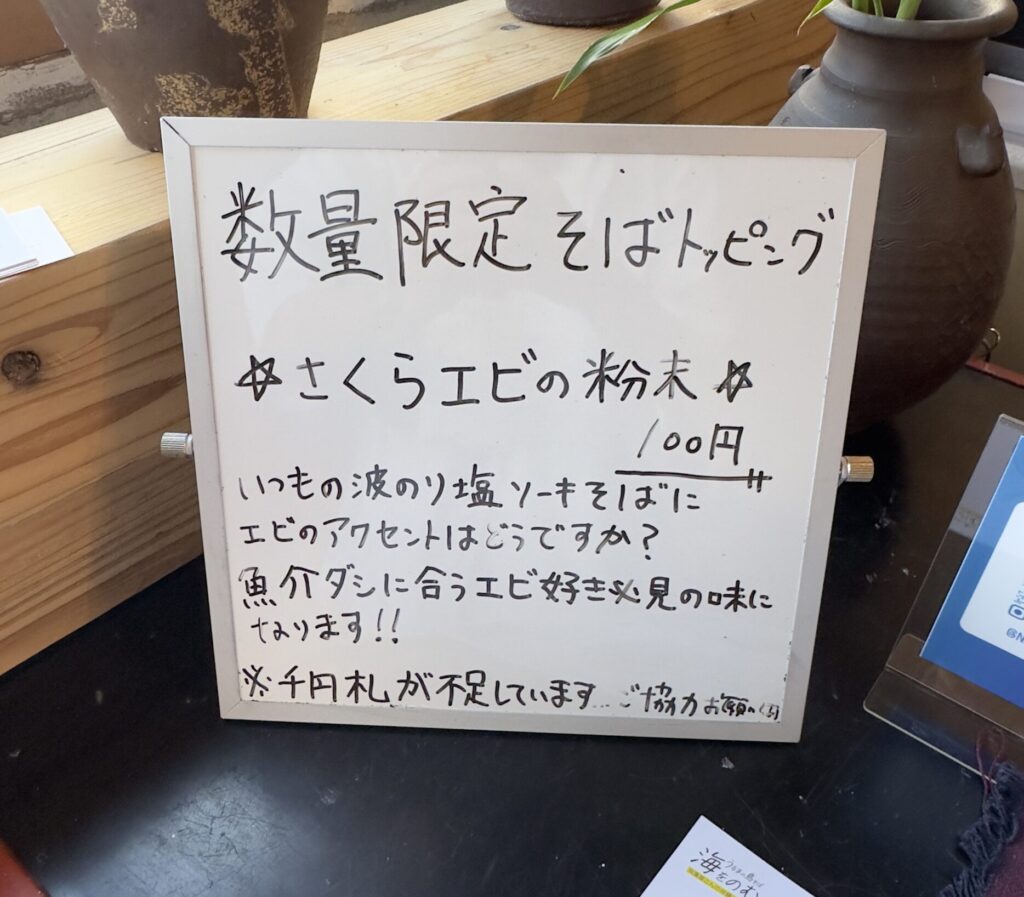 数量限定 そばトッピング
☆さくらエビの粉末☆
100円
いつもの波のり塩ソーキそばに
エビのアクセントはどうですか?
魚介ダシに合うエビ好き必見の味に
なります!!
※千円札が不足しています…ご協力お願い
うるまの島ガイ
海をのむ
@N